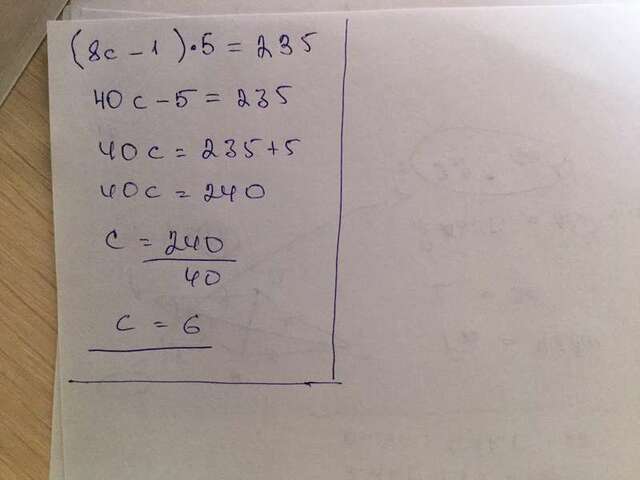 (8c - 1) • 5 = 235
40c - 5 = 235
40c = 235 + 5
40c = 240
c = 240
40
c = 6